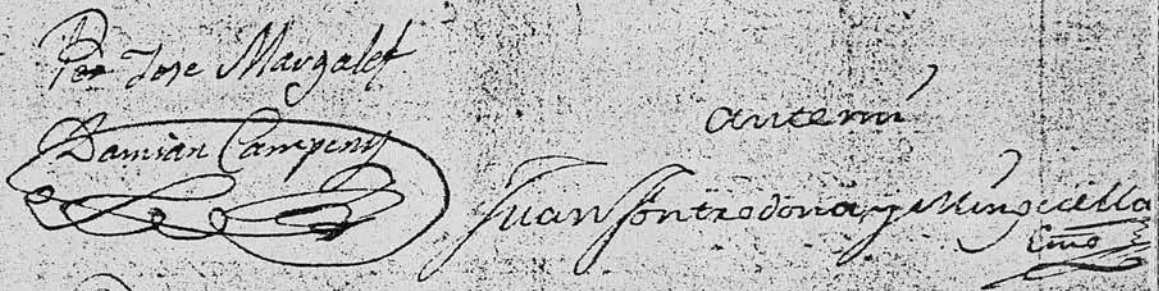 Por Jose Margalef
Damián Campeny
ante mi
Juan Fontrodona y Minguella
Esno